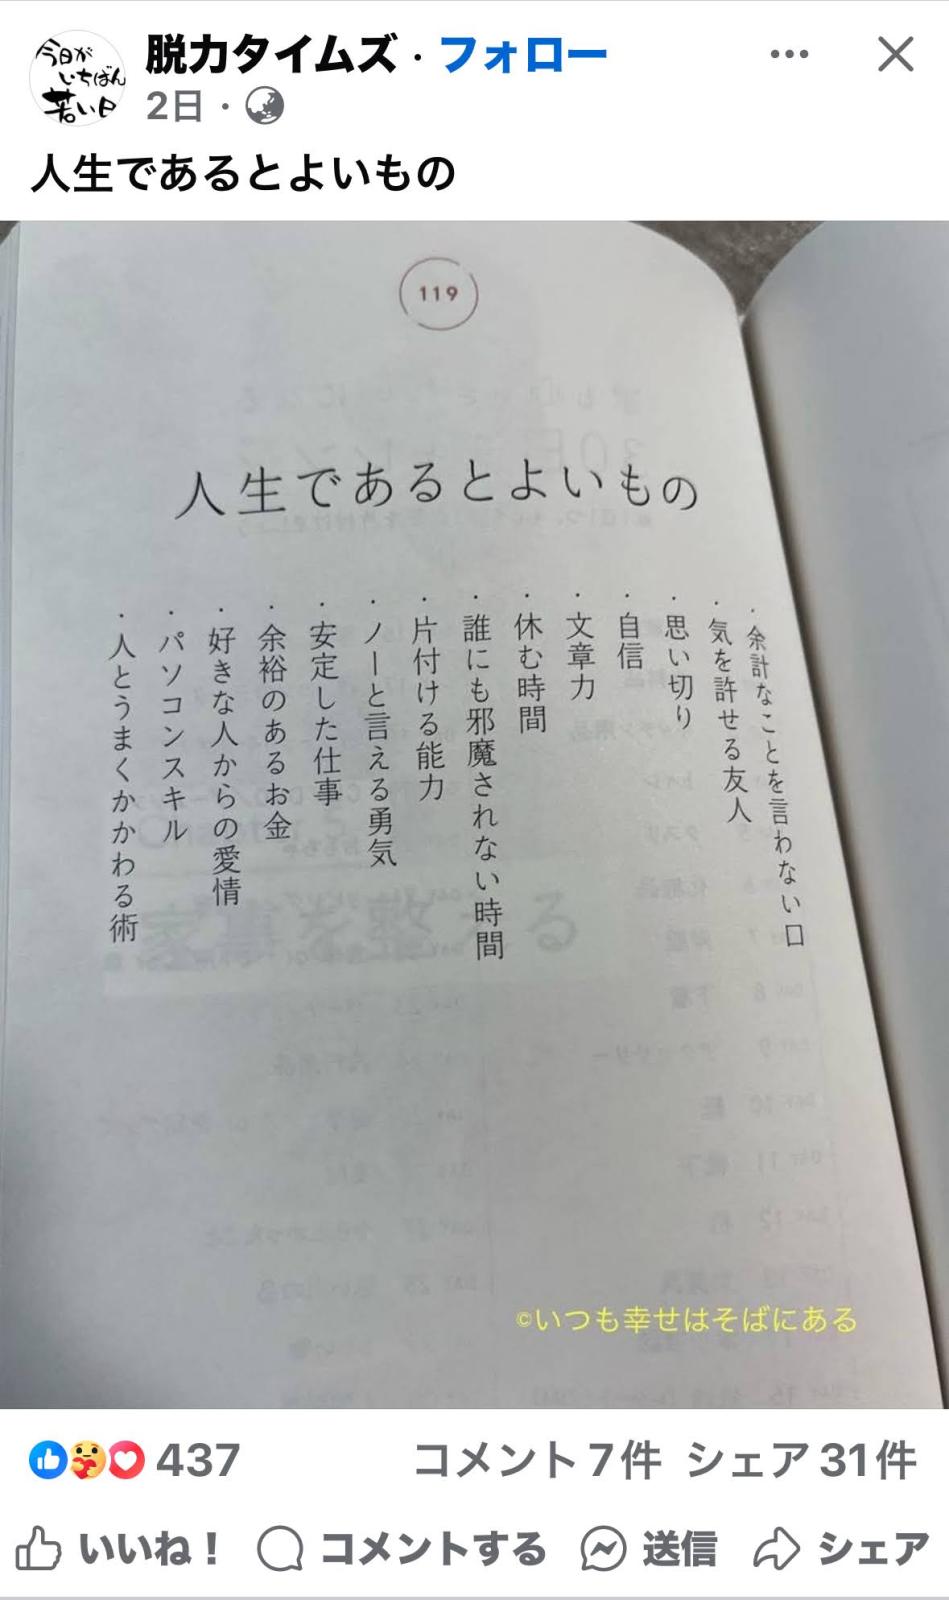 今日が
いちばん
若い日
脱力タイムズ・フォロー
2日・
人生であるとよいもの
119
人生であるとよいもの
・余計なことを言わない口
・気を許せる友人
・思い切り
・自信
・文章力
・休む時間
・誰にも邪魔されない時間
・片付ける能力
・ノーと言える勇気
・安定した仕事
・余裕のあるお金
・好きな人からの愛情
・パソコンスキル
・人とうまくかかわる術
©いつも幸せはそばにある
437
コメント7件 シェア31件
いいね！ コメントする 送信 シェア